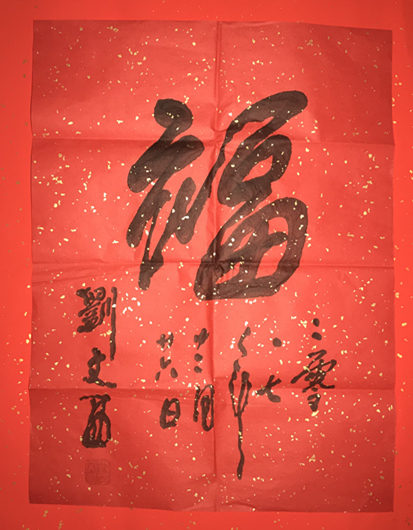 福
二零
〇七
年
十二月
廿六日
劉文西